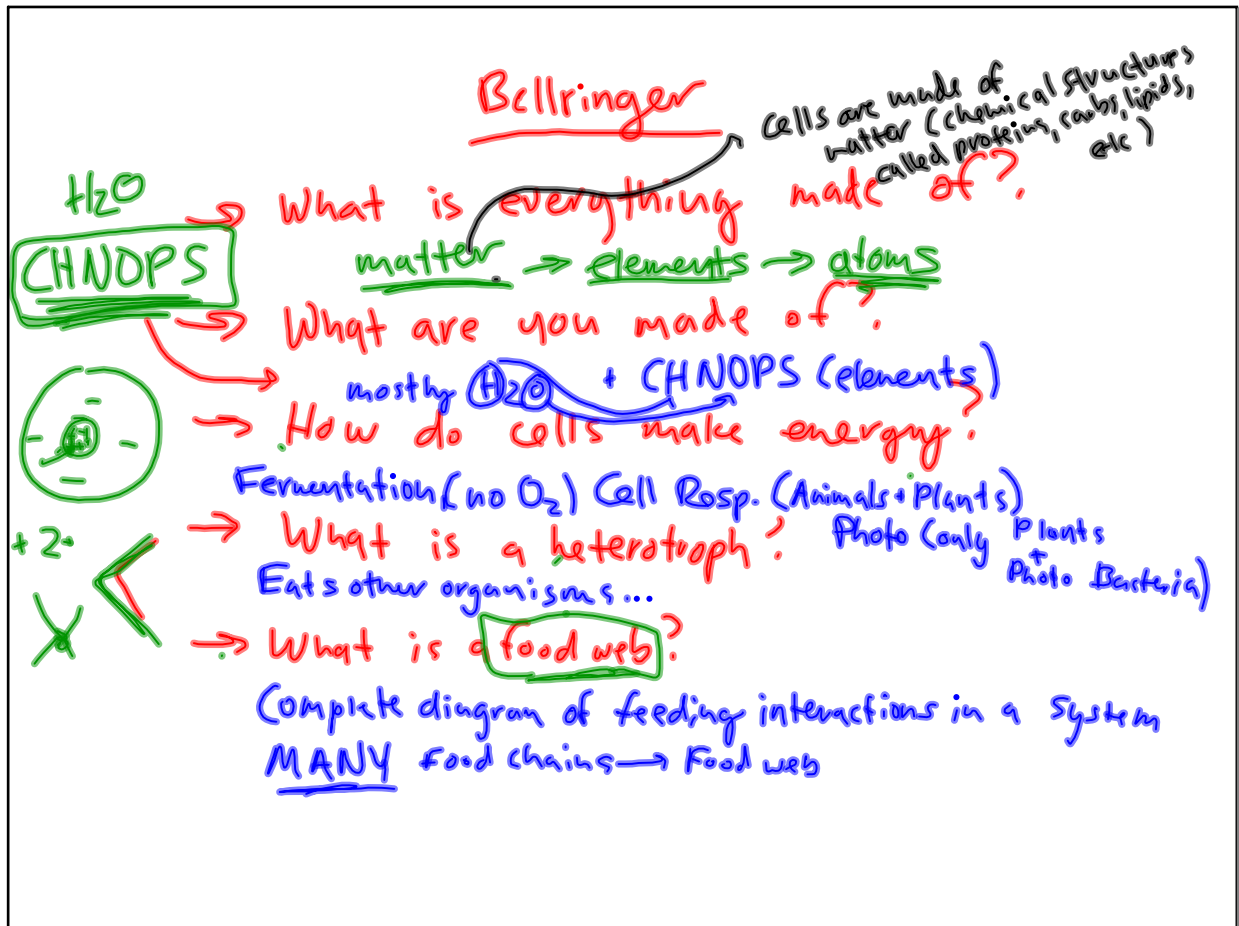 Bellringer
Cells are made of
matter (chemical structures
called proteins, carbs, lipids,
etc)
H2O
→ What is everything made of?
CHNOPS
matter → elements → atoms
→ What are you made of?
mostly H2O + CHNOPS (elements)
→ How do cells make energy?
Fermentation (no O2) Cell Resp. (Animals + Plants)
→ What is a heterotroph?
Photo (only Plants
+
Photo Bacteria)
Eats other organisms...
→ What is a food web?
Complete diagram of feeding interactions in a system
MANY Food chains → Food web